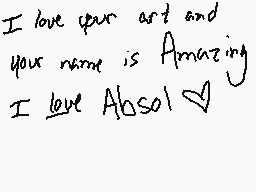 I love your art and
your name is Amazing
I love Absol ♡